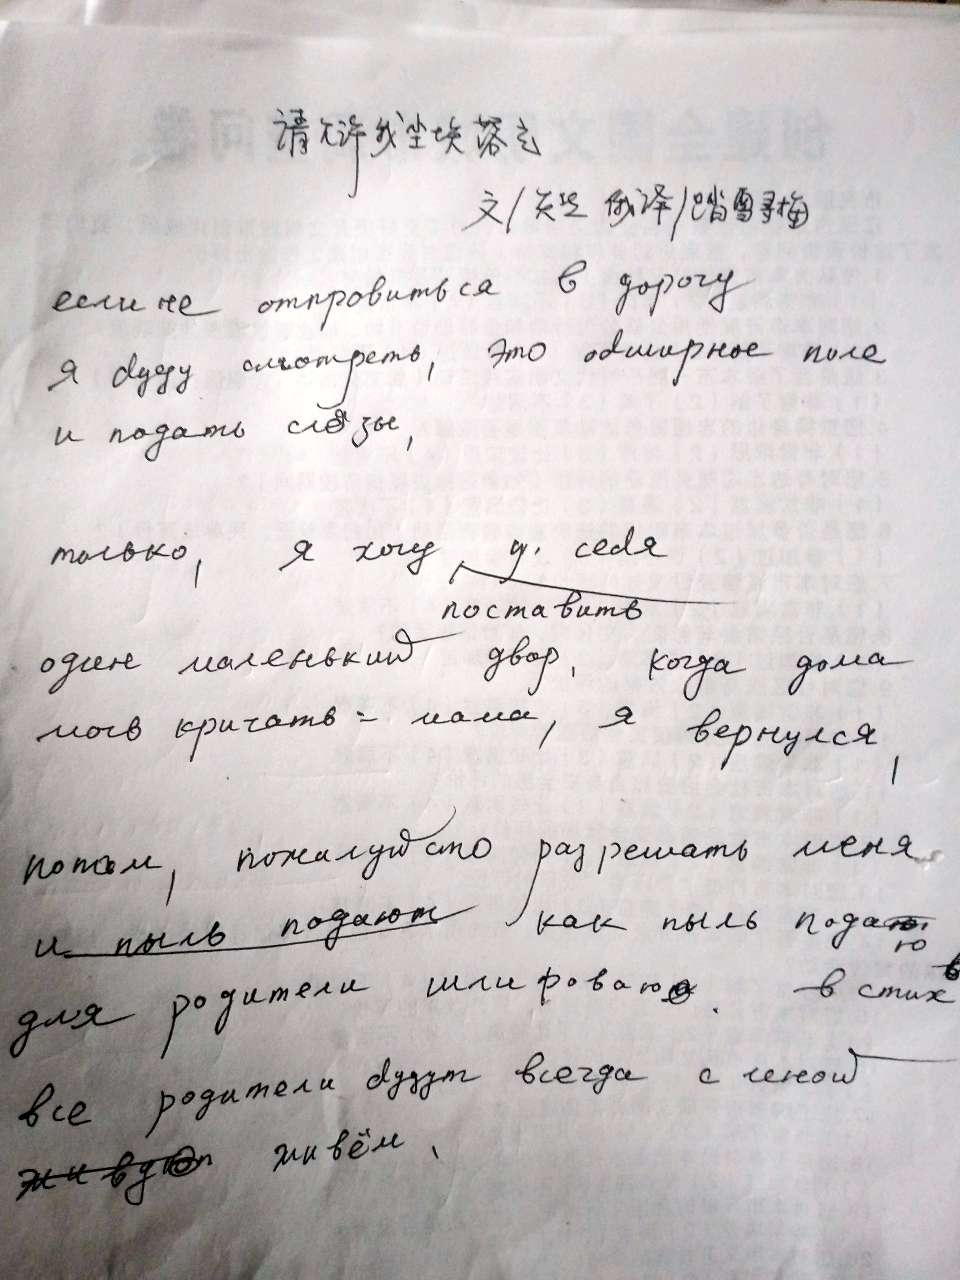 请允许我尘埃落定
文/关片 俄译/踏雪寻梅
если не отправиться в дорогу
я буду смотреть, это обширное поле
и подать слёзы,
только, я хочу, у себя
поставить
один маленький двор, когда дома
могв кричать = мама, я вернулся,
потом, пожалуйсто разрешать меня
и пыль подают как пыль подаю
для родители шлифоваю. в стихв
все родители будут всегда с меной
живут живём.